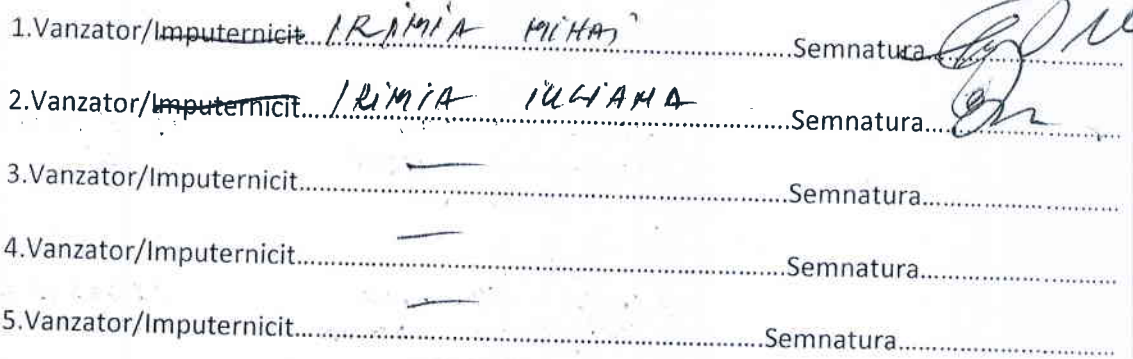 1.Vanzator/Imputernicit...IRIMIA MIHAI...Semnatura...
2.Vanzator/Imputernicit...IRIMIA IULIANA...Semnatura...
3.Vanzator/Imputernicit...—...Semnatura...
4.Vanzator/Imputernicit...—...Semnatura...
5.Vanzator/Imputernicit...—...Semnatura...